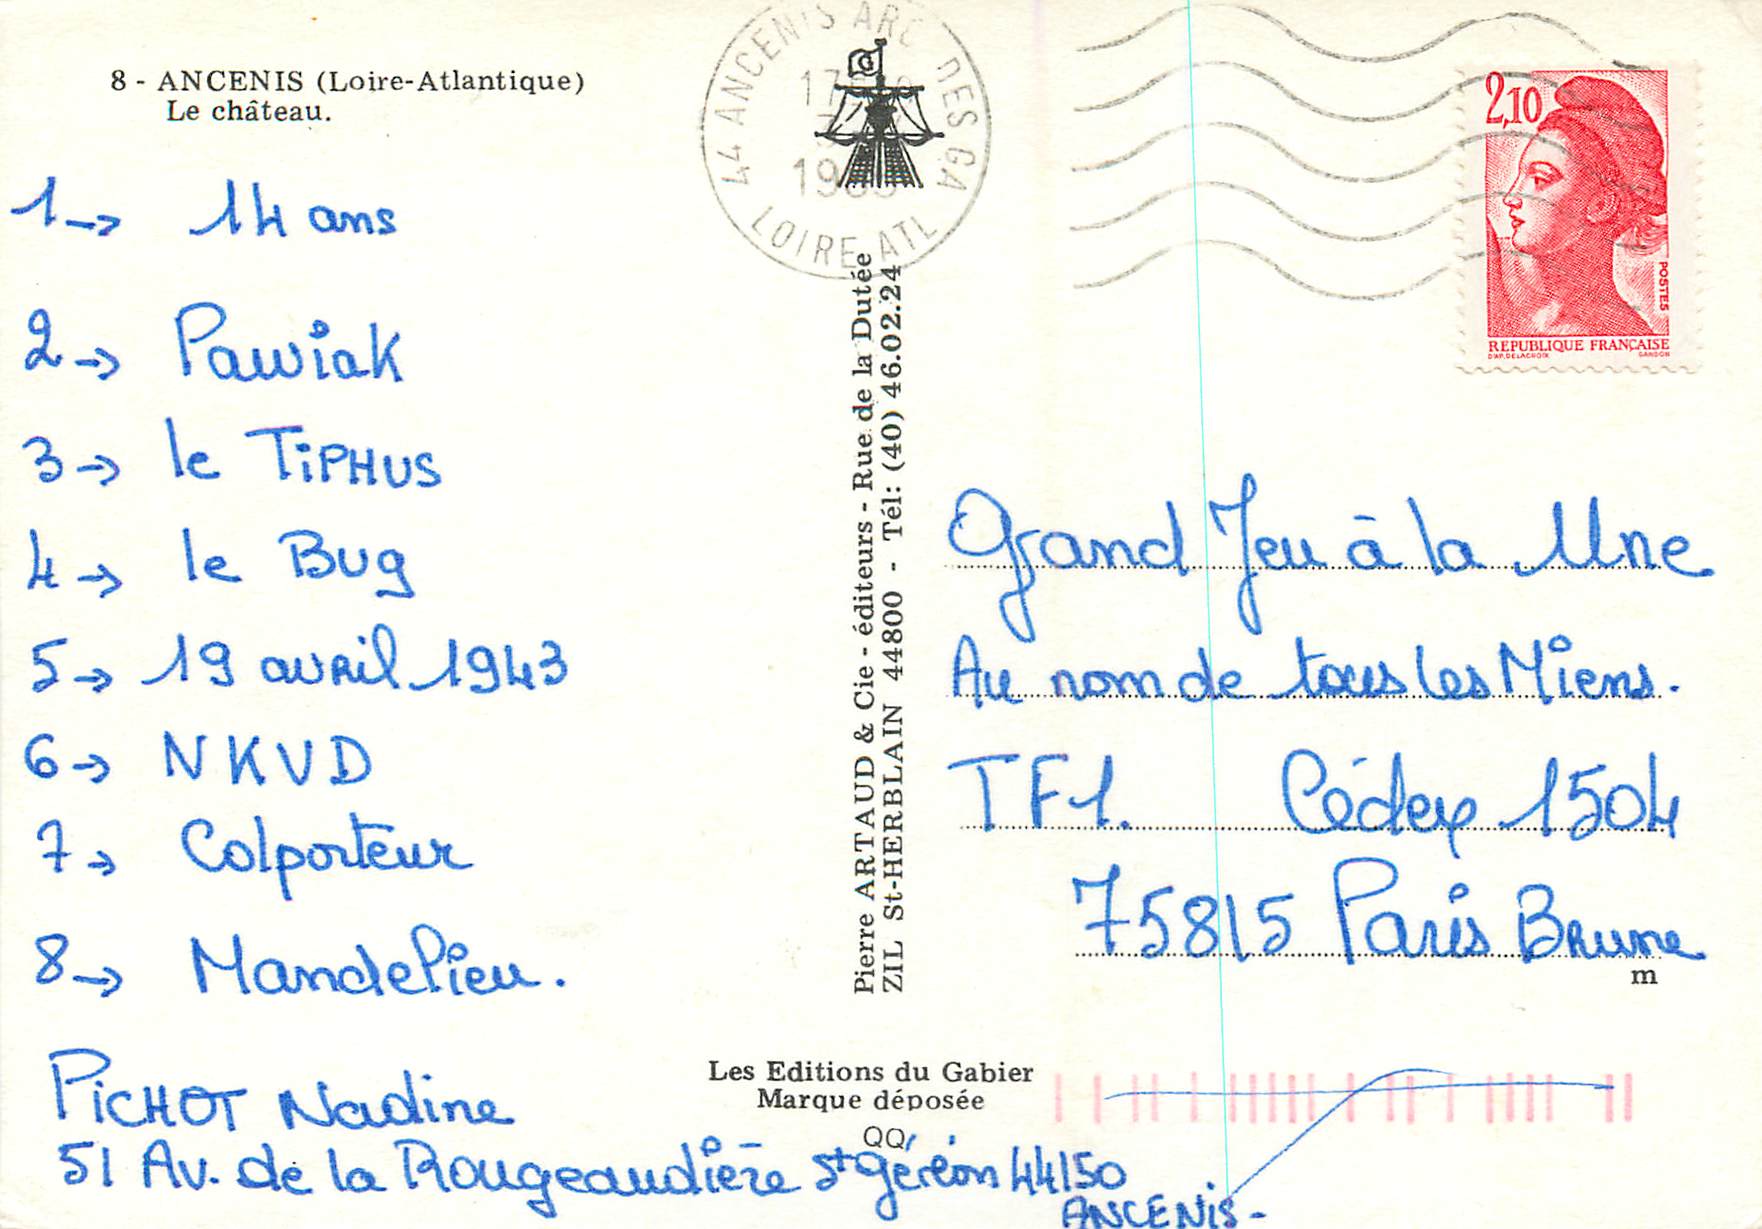 8 - ANCENIS (Loire-Atlantique)
Le château.
1→ 14 ans
2→ Pawiak
3→ le TiPHUS
4→ le Bug
5→ 19 avril 1943
6→ NKVD
7→ Colporteur
8→ Mandelieu.
PiCHOT Nadine
51 Av. de la Rougeaudière St Géréon 44150
ANCENiS-
44 ANCENIS ARC DES GA
LOIRE-ATL
Pierre ARTAUD & Cie - éditeurs - Rue de la Dutée
ZIL St-HERBLAIN 44800 - Tél: (40) 46.02.24
Les Editions du Gabier
Marque déposée
QQ
2,10
POSTES
REPUBLIQUE FRANÇAISE
D'AP. DELACROIX GANDON
Grand Jeu à la Une
Au nom de tous les Miens.
TF1. Cédex 1504
75815 Paris Brune
m